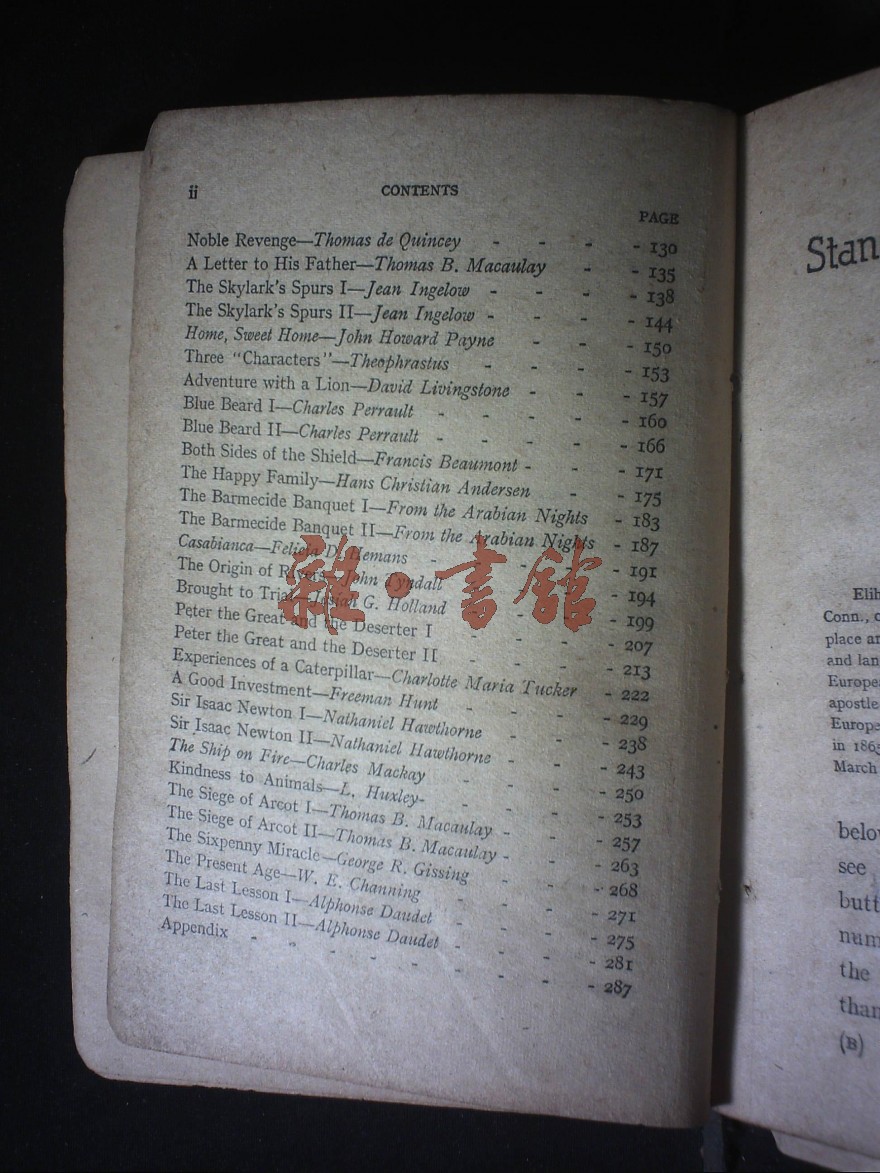 ii
CONTENTS
PAGE
Noble Revenge—Thomas de Quincey - - - - 130
A Letter to His Father—Thomas B. Macaulay - - 135
The Skylark's Spurs I—Jean Ingelow - - - - 138
The Skylark's Spurs II—Jean Ingelow - - - - 144
Home, Sweet Home—John Howard Payne - - - 150
Three "Characters"—Theophrastus - - - - 153
Adventure with a Lion—David Livingstone - - - 157
Blue Beard I—Charles Perrault - - - - - 160
Blue Beard II—Charles Perrault - - - - - 166
Both Sides of the Shield—Francis Beaumont - - - 171
The Happy Family—Hans Christian Andersen - - 175
The Barmecide Banquet I—From the Arabian Nights - 183
The Barmecide Banquet II—From the Arabian Nights - 187
Casabianca—Felicia D. Hemans - - - - - 191
The Origin of Rivers—John Tyndall - - - - 194
Brought to Trial—Josiah G. Holland - - - - 199
Peter the Great and the Deserter I - - - - 207
Peter the Great and the Deserter II - - - - 213
Experiences of a Caterpillar—Charlotte Maria Tucker - 222
A Good Investment—Freeman Hunt - - - - 229
Sir Isaac Newton I—Nathaniel Hawthorne - - - 238
Sir Isaac Newton II—Nathaniel Hawthorne - - - 243
The Ship on Fire—Charles Mackay - - - - 250
Kindness to Animals—L. Huxley- - - - - 253
The Siege of Arcot I—Thomas B. Macaulay - - - 257
The Siege of Arcot II—Thomas B. Macaulay - - - 263
The Sixpenny Miracle—George R. Gissing - - - 268
The Present Age—W. E. Channing - - - - 271
The Last Lesson I—Alphonse Daudet - - - - 275
The Last Lesson II—Alphonse Daudet - - - - 281
Appendix - - - - - - - - 287
雜·書館
Stan
Elih
Conn., o
place an
and lan
Europea
apostle
Europe
in 1865
March
belov
see
butt
num
the
than
(B)